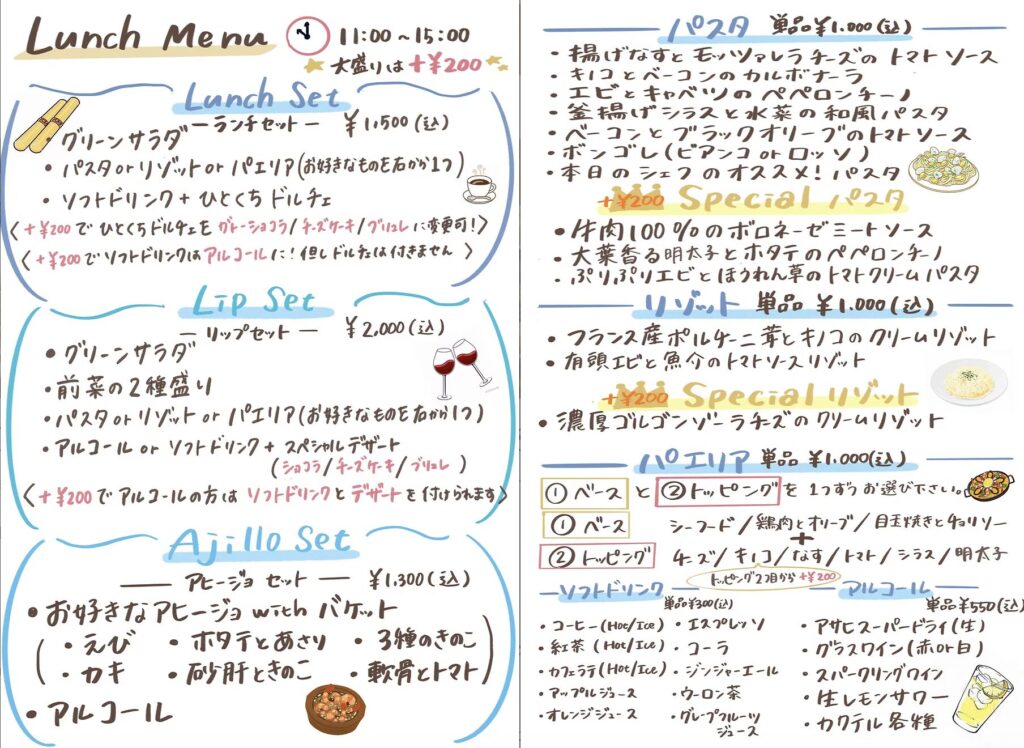 Lunch Menu 11:00～15:00
大盛りは+¥200
Lunch Set
ーランチセットー ¥1,500(込)
グリーンサラダ
・パスタ or リゾット or パエリア(お好きなものを右から1つ)
・ソフトドリンク + ひとくち ドルチェ
〈+¥200で ひとくちドルチェを ガトーショコラ/チーズケーキ/ブリュレ に変更可!〉
〈+¥200でソフトドリンクはアルコールに!但しドルチェは付きません〉
Lip Set
ーリップセットー ¥2,000(込)
・グリーンサラダ
・前菜の2種盛り
・パスタ or リゾット or パエリア(お好きなものを右から1つ)
・アルコール or ソフトドリンク + スペシャルデザート
(ショコラ/チーズケーキ/ブリュレ)
〈+¥200でアルコールの方は ソフトドリンクとデザートを付けられます〉
Ajillo Set
ーアヒージョ セットー ¥1,300(込)
・お好きなアヒージョ with バケット
・えび ・ホタテとあさり ・3種のきのこ
・カキ ・砂肝ときのこ ・軟骨とトマト
・アルコール
パスタ 単品¥1,000(込)
・揚げなすとモッツァレラチーズの トマトソース
・キノコとベーコンのカルボナーラ
・エビとキャベツのペペロンチーノ
・釜揚げシラスと水菜の和風パスタ
・ベーコンとブラックオリーブのトマトソース
・ボンゴレ(ビアンコ or ロッソ)
・本日のシェフのオススメ!パスタ
+¥200 Special パスタ
・牛肉100%のボロネーゼミートソース
・大葉香る明太子とホタテのペペロンチーノ
・ぷりぷりエビとほうれん草のトマトクリームパスタ
リゾット 単品 ¥1,000(込)
・フランス産ポルチーニ茸とキノコのクリームリゾット
・有頭エビと魚介のトマトソースリゾット
+¥200 Special リゾット
・濃厚ゴルゴンゾーラチーズのクリームリゾット
パエリア 単品 ¥1,000(込)
①ベース と ②トッピング を 1つずつお選び下さい。
①ベース シーフード/鶏肉とオリーブ/目玉焼きとチョリソー
+
②トッピング チーズ/キノコ/なす/トマト/シラス/明太子
トッピング2つ目から +¥200
ソフトドリンク 単品¥300(込)
・コーヒー(Hot/Ice) ・エスプレッソ
・紅茶(Hot/Ice) ・コーラ
・カフェラテ(Hot/Ice) ・ジンジャーエール
・アップルジュース ・ウーロン茶
・オレンジジュース ・グレープフルーツ
ジュース
アルコール
単品¥550(込)
・アサヒスーパードライ(生)
・グラスワイン(赤or白)
・スパークリングワイン
・生レモンサワー
・カクテル各種